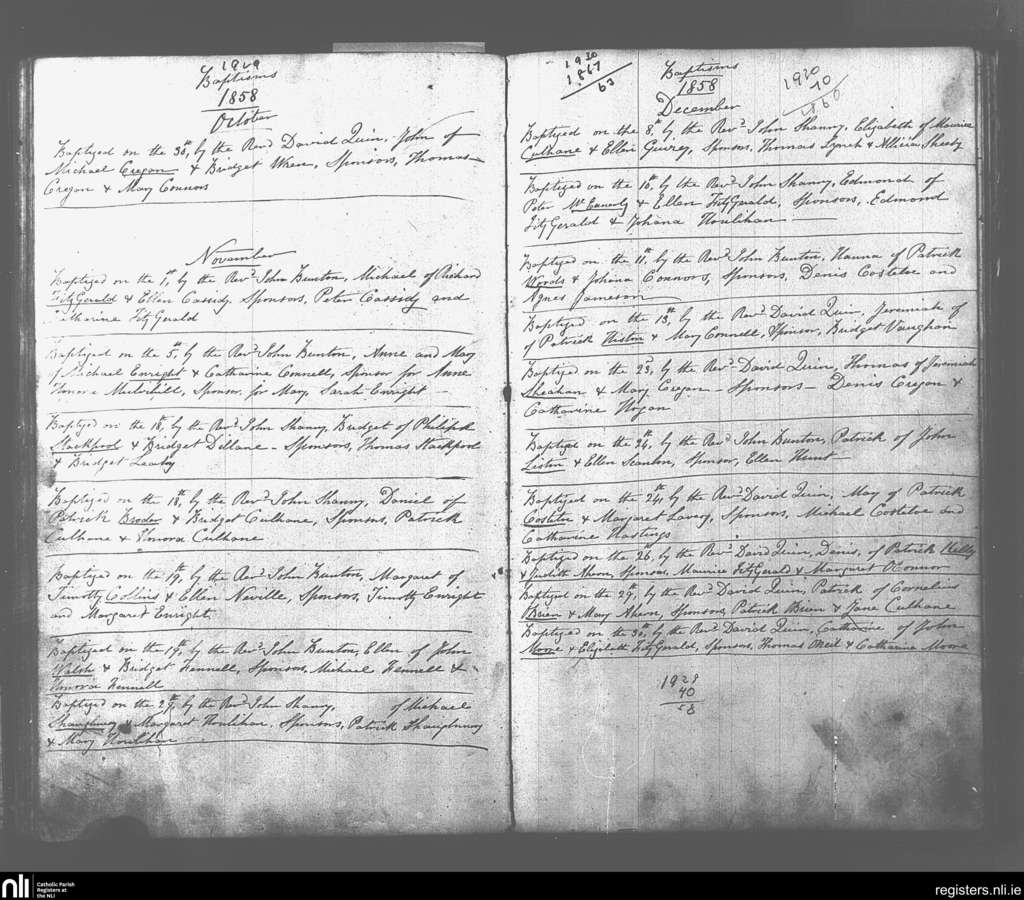 1929
Baptisms
1858
October
Baptized on the 30th, by the Revd David Quin, John of
Michael Cregan & Bridget Wren, Sponsors, Thomas
Cregan & Mary Connors
November
Baptized on the 1st, by the Revd John Bunton, Michael of Richard
FitzGerald & Ellen Cassidy, Sponsors, Peter Cassidy and
Catharine FitzGerald
Baptized on the 5th, by the Revd John Bunton, Anne and Mary
of Michael Enright & Catharine Connell, Sponsor for Anne
Honora Mulvihill, Sponsor for Mary Sarah Enright
Baptized on the 18th, by the Revd John Shanny, Bridget of Philip
Stackpool & Bridget Dillane - Sponsors, Thomas Stackpool
& Bridget
Baptized on the 18th, by the Revd John Shanny, Daniel of
Patrick Broder & Bridget Culhane, Sponsors, Patrick
Culhane & Honora Culhane
Baptized on the 19th, by the Revd John Bunton, Margaret of
Timothy Collins & Ellen Neville, Sponsors, Timothy Enright
and Margaret Enright
Baptized on the 19th, by the Revd John Bunton, Ellen of John
Walsh & Bridget Fennell, Sponsors, Michael Fennell &
Honora Fennell
Baptized on the 29th, by the Revd John Shanny, of Michael
Shaughnessy & Margaret Houlihan, Sponsors, Patrick Shaughnessy
& Mary Houlihan
1930
1867
63
Baptisms
1858
December
1930
70
1860
Baptized on the 8th, by the Revd John Shanny, Elizabeth of Maurice
Culhane & Ellen Guiry, Sponsors, Thomas Lynch & Allicia Sheehy
Baptized on the 10th, by the Revd John Shanny, Edmond of
Peter McEnnerty & Ellen FitzGerald, Sponsors, Edmond
FitzGerald & Johana Houlihan
Baptized on the 11th, by the Revd John Bunton, Hanna of Patrick
Woods & Johana Connors, Sponsors, Denis Costeloe and
Agnes Jameson
Baptized on the 13th, by the Revd David Quin, Jeremiah of
of Patrick Histon & Mary Connell, Sponsor, Bridget Vaughan
Baptized on the 23, by the Revd David Quin, Thomas of Jeremiah
Sheahan & Mary Cregan - Sponsors - Denis Cregan &
Catharine Hogan
Baptized on the 24th, by the Revd John Bunton, Patrick of John
Liston & Ellen Scanlon, Sponsor, Ellen Hunt
Baptized on the 24th, by the Revd David Quin, May of Patrick
Costeloe & Margaret Lavery, Sponsors, Michael Costeloe and
Catharine Hastings
Baptized on the 26th, by the Revd David Quin, Denis, of Patrick Kelly
& Judith Ahern, Sponsors, Maurice FitzGerald & Margaret OConnor
Baptized on the 29th, by the Revd David Quin, Patrick of Cornelius
Brien & Mary Ahern, Sponsors, Patrick Brien & Jane Culhane
Baptized on the 30th, by the Revd David Quin, Catharine of John
Moore & Elizabeth FitzGerald, Sponsors, Thomas Neil & Catharine Moore
1928
70
58
nli
Catholic Parish
Registers at
the NLI
registers.nli.ie